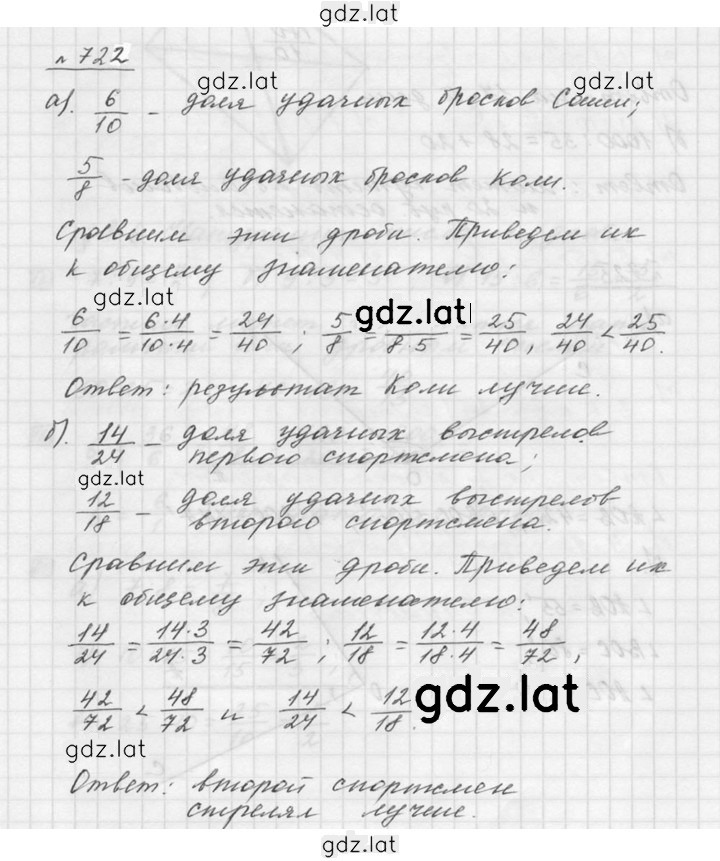 gdz.lat
№ 722
gdz.lat gdz.lat
а). 6/10 – доля удачных бросков Саши;
5/8 – доля удачных бросков Коли.
Сравним эти дроби. Приведем их
к общему знаменателю:
gdz.lat gdz.lat
6/10 = 6·4/10·4 = 24/40 ; 5/8 = /8·5 = 25/40, 24/40 < 25/40.
Ответ: результат Коли лучше.
б). 14/24 – доля удачных выстрелов
первого спортсмена;
gdz.lat
12/18 – доля удачных выстрелов
второго спортсмена.
Сравним эти дроби. Приведем их
к общему знаменателю:
14/24 = 14·3/24·3 = 42/72 ; 12/18 = 12·4/18·4 = 48/72,
42/72 < 48/72 и 14/24 < 12/18.
gdz.lat gdz.lat
Ответ: второй спортсмен
стрелял лучше.
gdz.lat